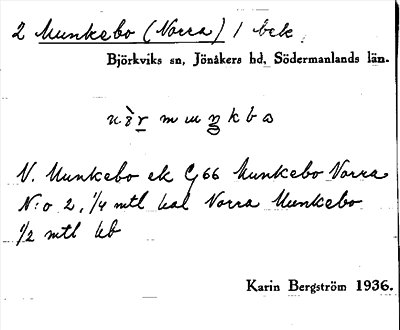 2 Munkebo (Norra) 1 bek.
Björkviks sn, Jönåkers hd, Södermanlands län.
V. Munkebo ek G 66 Munkebo Norra
N:o 2, 1/4 mtl kal Norra Munkebo
1/2 mtl kb
Karin Bergström 1936.